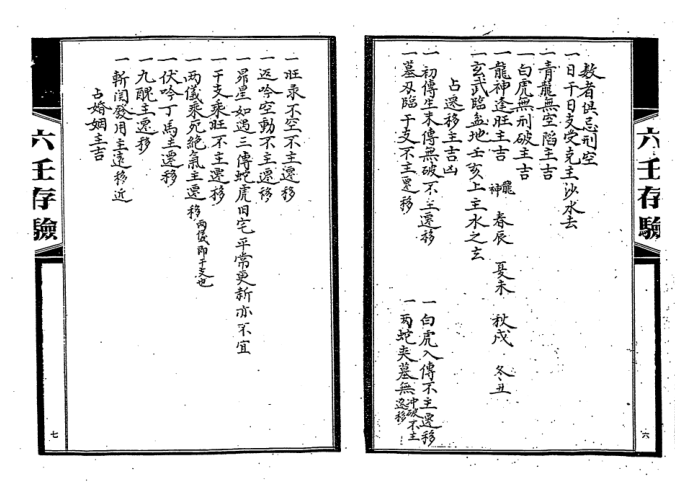 六壬存驗
數者俱忌刑空
一日干日支受克主沙水去
一青龍無空陷主吉
一白虎無刑破主吉
一龍神逢旺主吉 龍神 春辰 夏未 秋戌 冬丑
一玄武臨孟地壬亥上主水之玄
占遷移主吉凶
一初傳生末傳無破不主遷移
一白虎入傳不主遷移
一墓刃臨干支不主遷移
一兩蛇夾墓無沖破不主遷移
六
一旺彔不空不主遷移
一返吟空動不主遷移
一昴星如遇三傳蛇虎旧宅平常更新亦不宜
一干支乘旺不主遷移
一兩儀乘死絕氣主遷移 兩儀即干支也
一伏吟丁馬主遷移
一九醜主遷移
一斬関發用主遠移近
占婚姻主吉
六壬存驗
七